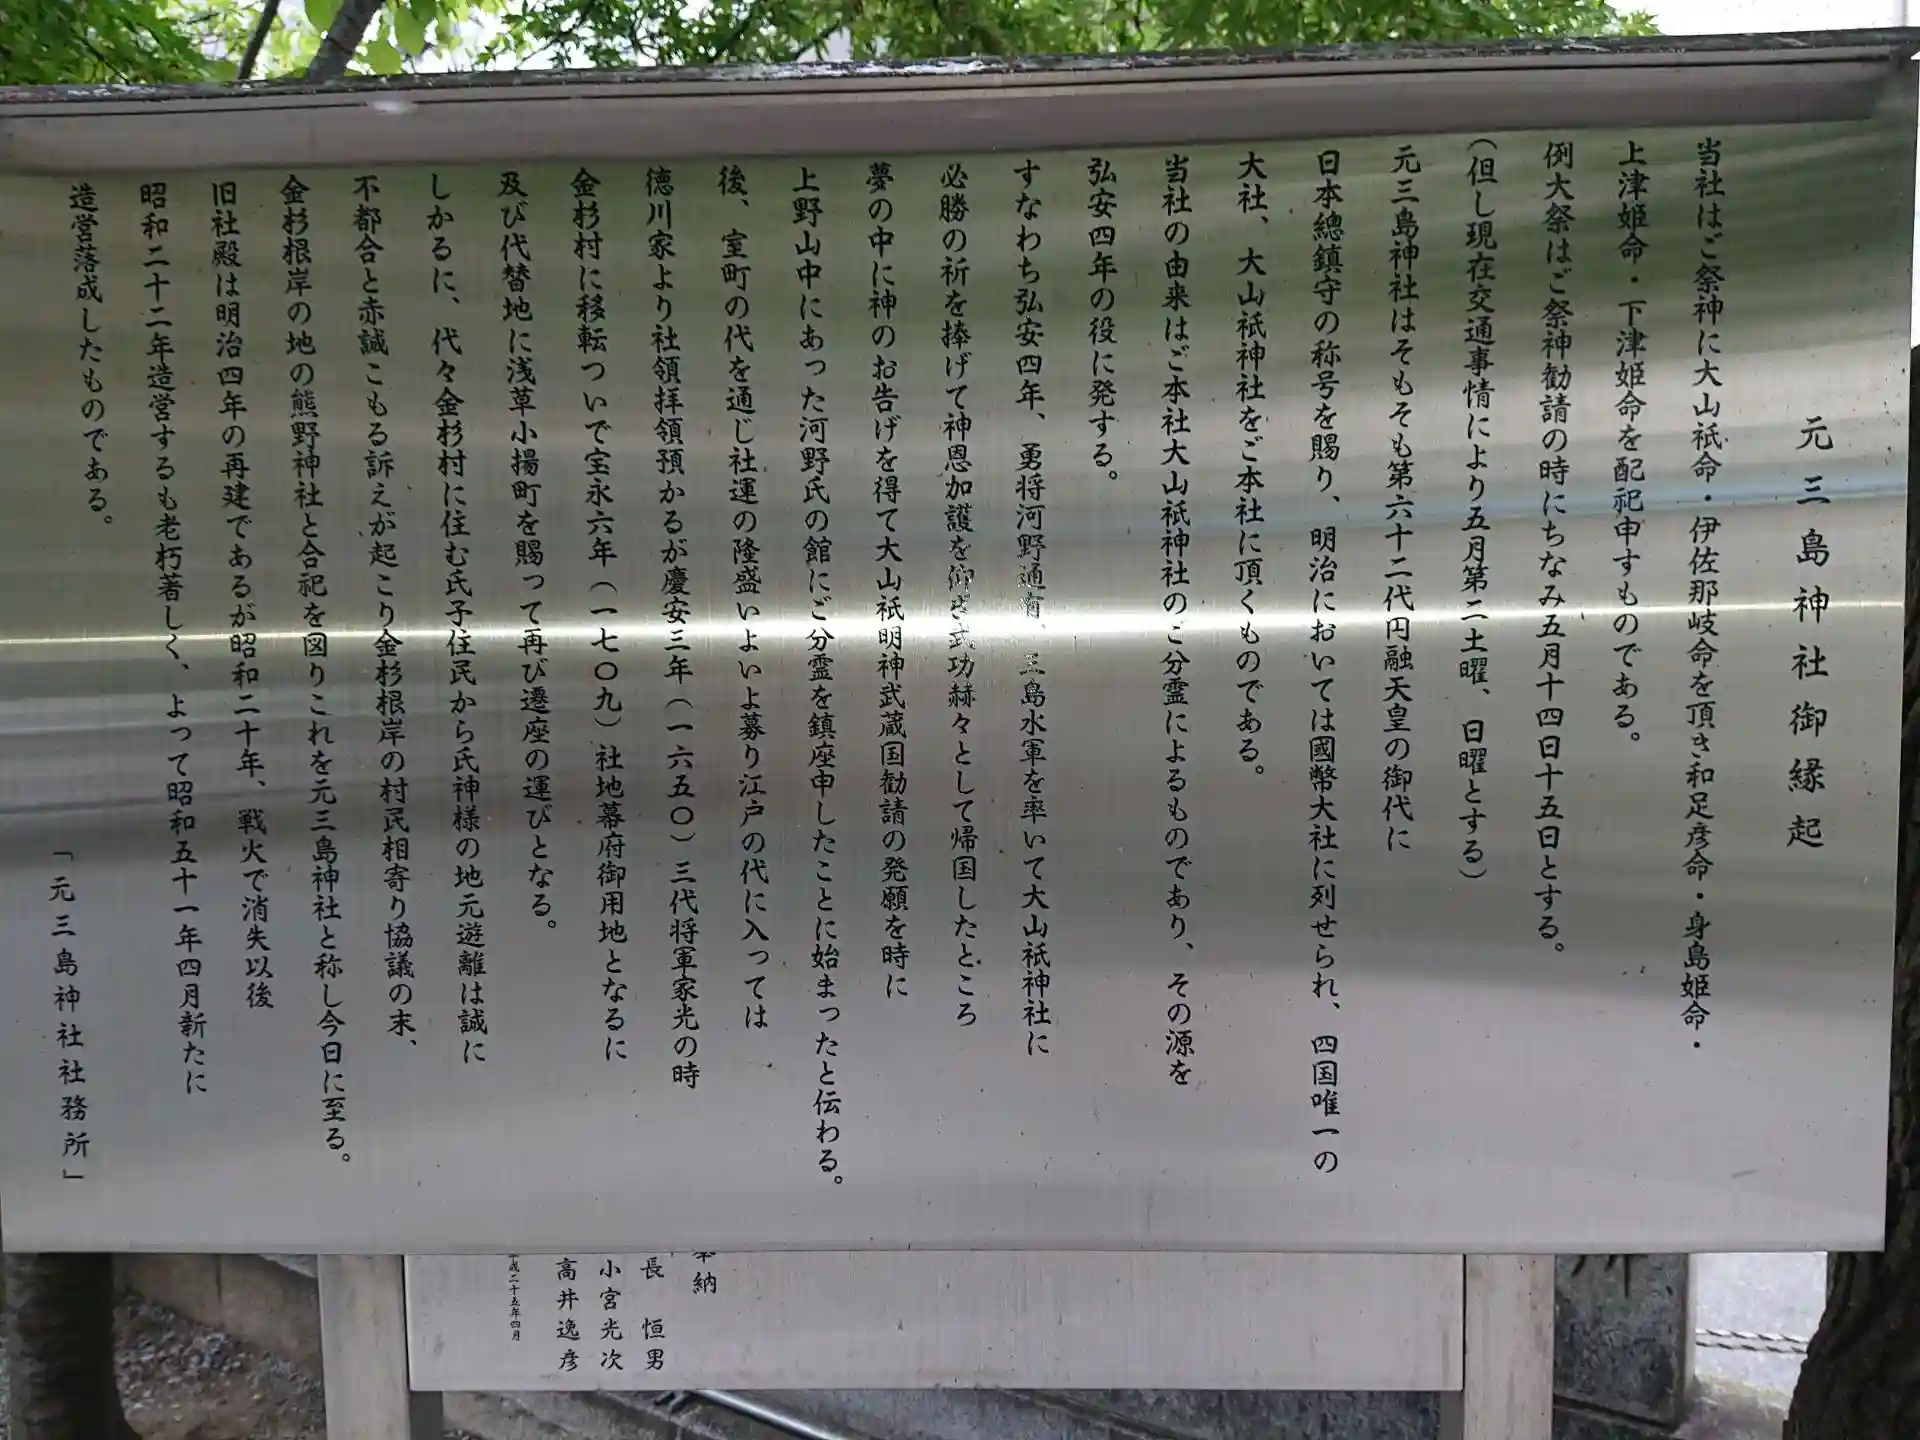 元三島神社御縁起
当社はご祭神に大山祇命・伊佐那岐命を頂き和足彦命・身島姫命・
上津姫命・下津姫命を配祀申すものである。
例大祭はご祭神勧請の時にちなみ五月十四日十五日とする。
(但し現在交通事情により五月第二土曜、日曜とする)
元三島神社はそもそも第六十二代円融天皇の御代に
日本總鎮守の称号を賜り、明治においては國幣大社に列せられ、四国唯一の
大社、大山祇神社をご本社に頂くものである。
当社の由来はご本社大山祇神社のご分霊によるものであり、その源を
弘安四年の役に発する。
すなわち弘安四年、勇将河野通有、三島水軍を率いて大山祇神社に
必勝の祈を捧げて神恩加護を仰ぎ武功赫々として帰国したところ
夢の中に神のお告げを得て大山祇明神武蔵国勧請の発願を時に
上野山中にあった河野氏の館にご分霊を鎮座申したことに始まったと伝わる。
後、室町の代を通じ社運の隆盛いよいよ募り江戸の代に入っては
徳川家より社領拝領預かるが慶安三年(一六五〇)三代将軍家光の時
金杉村に移転ついで宝永六年(一七〇九)社地幕府御用地となるに
及び代替地に浅草小揚町を賜って再び遷座の運びとなる。
しかるに、代々金杉村に住む氏子住民から氏神様の地元遊離は誠に
不都合と赤誠こもる訴えが起こり金杉根岸の村民相寄り協議の末、
金杉根岸の地の熊野神社と合祀を図りこれを元三島神社と称し今日に至る。
旧社殿は明治四年の再建であるが昭和二十年、戦火で消失以後
昭和二十二年造営するも老朽著しく、よって昭和五十一年四月新たに
造営落成したものである。
「元三島神社社務所」
奉納
長 恒男
小宮光次
高井逸彦
平成二十五年四月